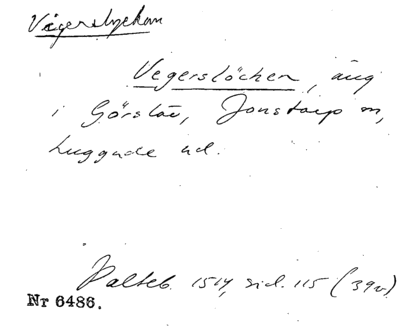 Vegerslyckan
Vegerslöcken, äng
i Görslöv, Jonstorp sn,
Luggude hd.
Palteb. 1514, sid. 115 (39v)
Nr 6486.